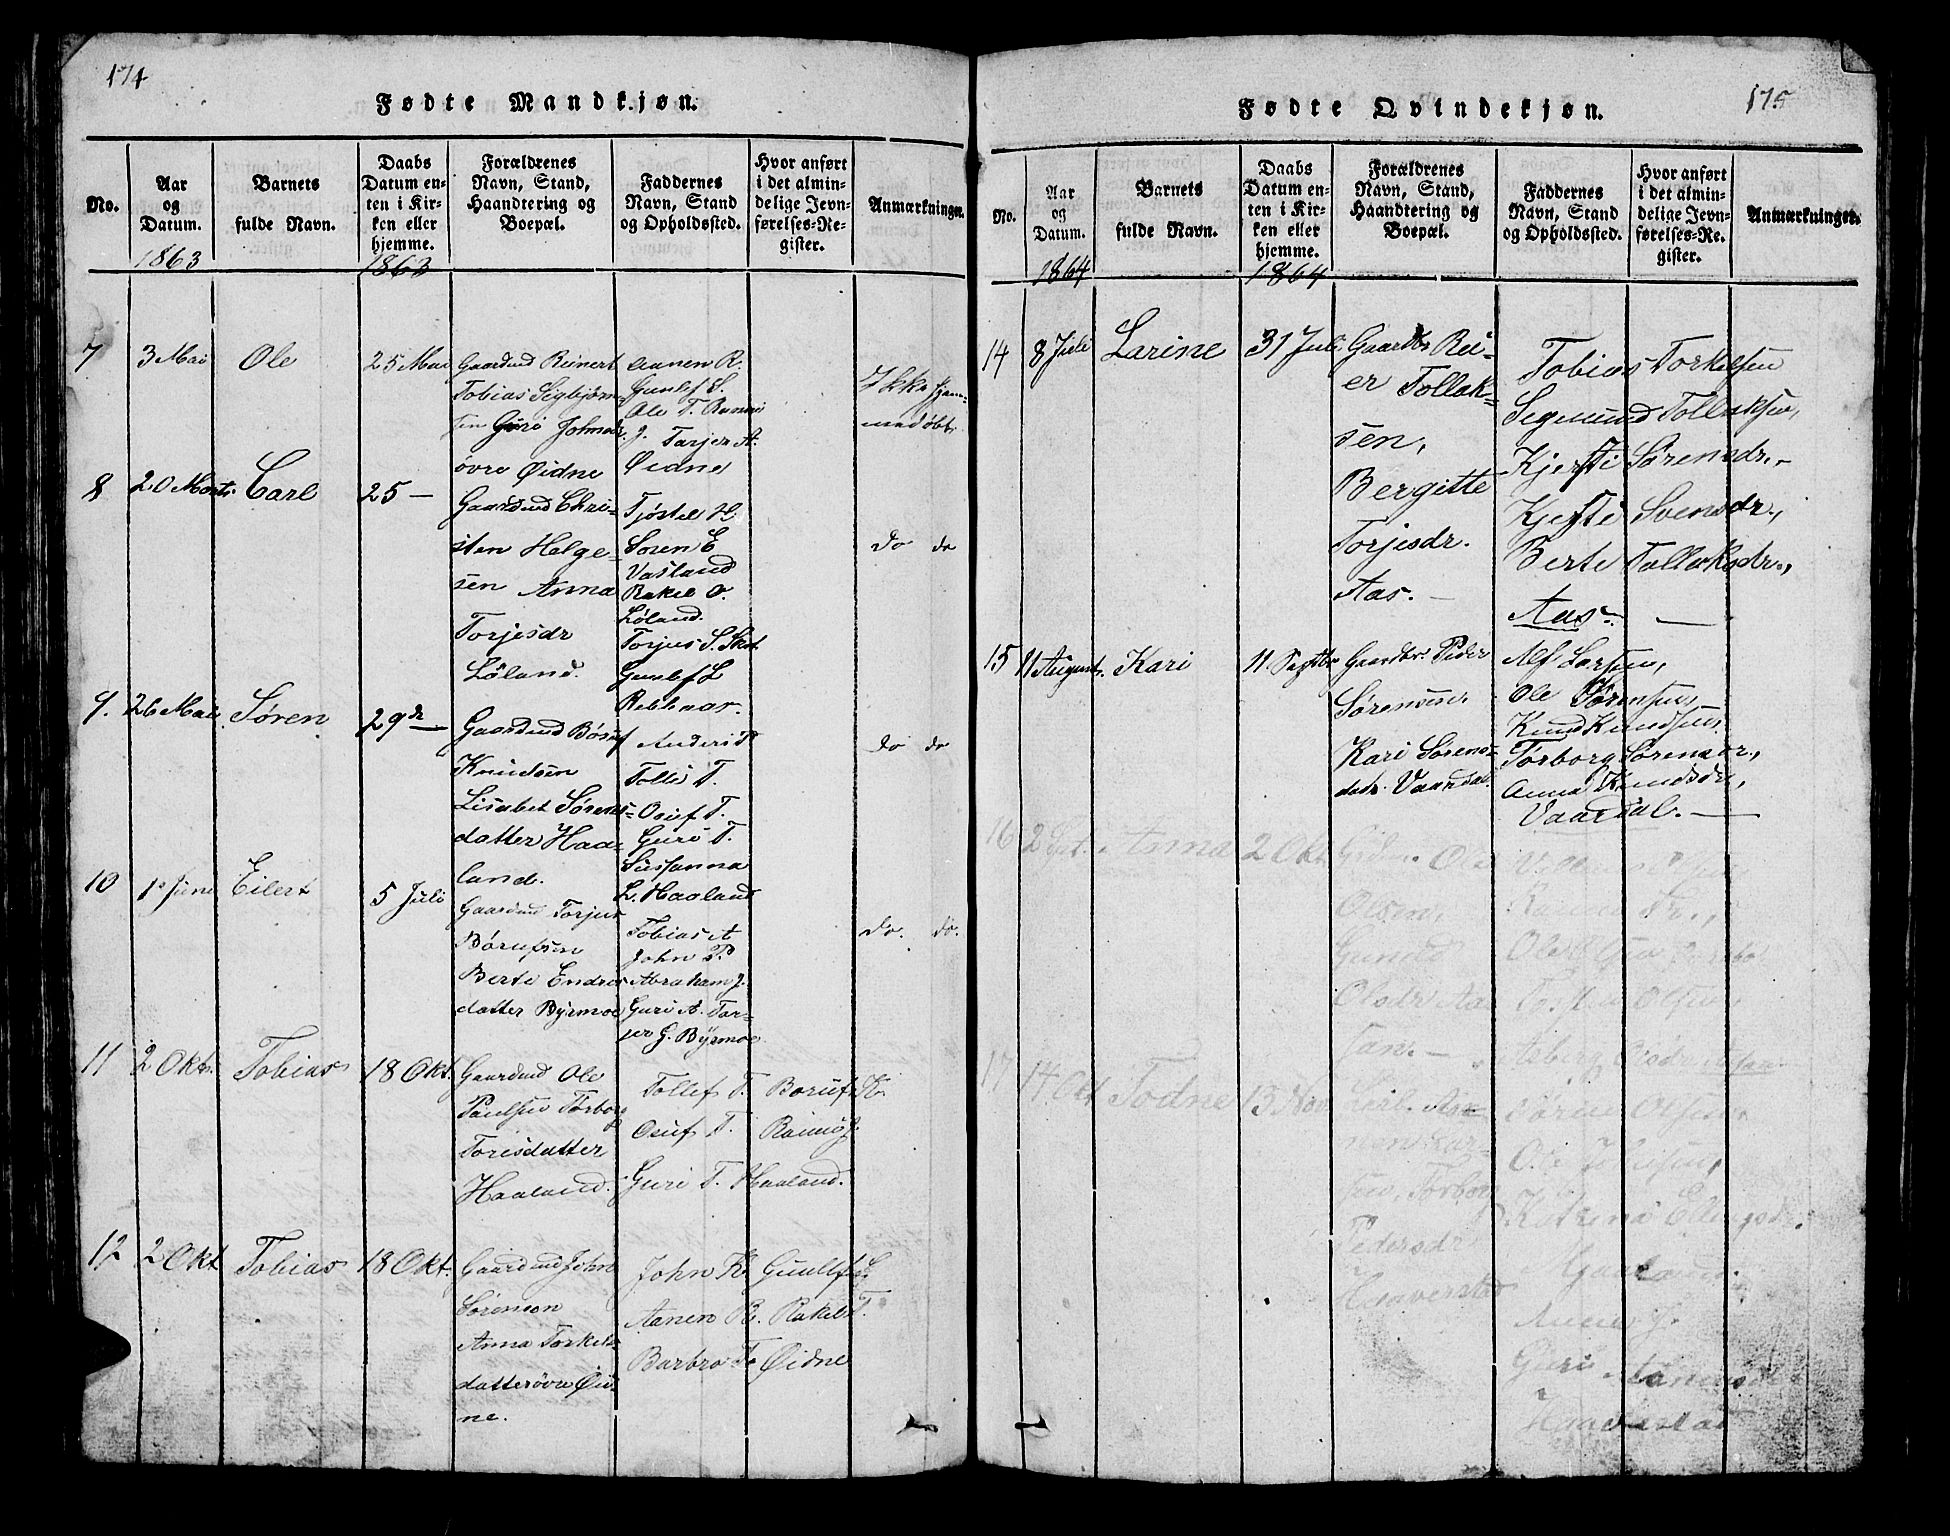 174
Fødte Mandkjøn.
No.
Aar
og
Datum.
1863
Barnets
fulde Navn.
Daabs
Datum en-
ten i Kir-
ken eller
hjemme.
1863
Forældrenes
Navn, Stand,
Haandtering og
Boepæl.
Faddernes
Navn, Stand
og Opholdssted.
Hvor anført
i det almin-
delige Jevn-
førelses-Re-
gister.
Anmærkninger.
7
3 Mai
Ole
25 Mai
Gaardmd Reinert
Tobias Sigbjørn-
sen Guri Johnsdr.
øvre Øidne
Aanen R.
Gunlef S.
Ole T. Rømni
J. Tarjer A.
Øidne
Ikke hjem-
medøbt.
8
20 Marts.
Carl
25 —
Gaardmd Chri-
sten Helge-
sen Anna
Torjesdr
Löland.
Tjøstel H.
Soren E
Vasland
Rakel O.
Løland.
Torjus S. Skot
Gunlef L
Rebhaar.
do do
9.
26 Mai
Søren
29de —
Gaardmd Børuf
Knudsen
Lisabet Sørens-
datter Haa-
land.
Anders T
Tolli T.
Osuf T.
Guri T.
Sussanna
L. Haaland
do do
10
1s Juni
Eilert
5 Juli
Gaardmd Torjus
Børufsen
Berte Endres
datter Byrmoe
Tobias A
John P.
Abraham J.
Guri A. Tar-
jer G. Byrmoe
do. do.
11
2 Okt.
Tobias
18 Okt.
Gaardmd Ole
Paulsen Tørborg
Torisdatter
Haaland.
Tollef T. Boruf K.
Osuf T. Rainus J.
Guri T. Haaland.
12
2 Okt
Tobias
18 Okt.
Gaardmd John
Sørenson
Anna Torkels-
datter øvre Øid-
ne.
John K. Gunlef L.
Aanen R. Rakel T.
Barbro T. Øidne
175
Fødte Qvindekjøn.
No.
Aar
og
Datum.
1864
Barnets
fulde Navn.
Daabs
Datum en-
ten i Kir-
ken eller
hjemme.
1864
Forældrenes
Navn, Stand,
Haandtering og
Boepæl.
Faddernes
Navn, Stand
og Opholdssted.
Hvor anført
i det almin-
delige Jevn-
førelses-Re-
gister.
Anmærkninger.
14
8 Juli
Larine
31 Juli
Gaardbr Rei-
er Tollak-
sen,
Bergitte
Torjesdr.
Aas. —
Tobias Torkelsen
Segmund Tollaksen,
Kjersti Sørensdr. -
Kjersti Svensdr.,
Berte Tollaksdr.,
Aas. —
15
11 August.
Kari
11. Septbr
Gaardbr. Peder
Sørensen.
Kari Sørens-
datr. Vaardal.
Alf Larsen,
Ole Sørensen,
Knud Knudsen,
Tørborg Sørensdr.,
Anna Knudsdr.,
Vaardal. —
16
2
Anna
2 Okt
Ole
Olsen,
Gunde
Olsdr
Ole Olsen
Olsen,
17
14. Okt
Todne
13 Nov
Tørborg
Pedersdr
Haaverstad
Olsen,
Ole
Katrina Ellingsdr.
Guri